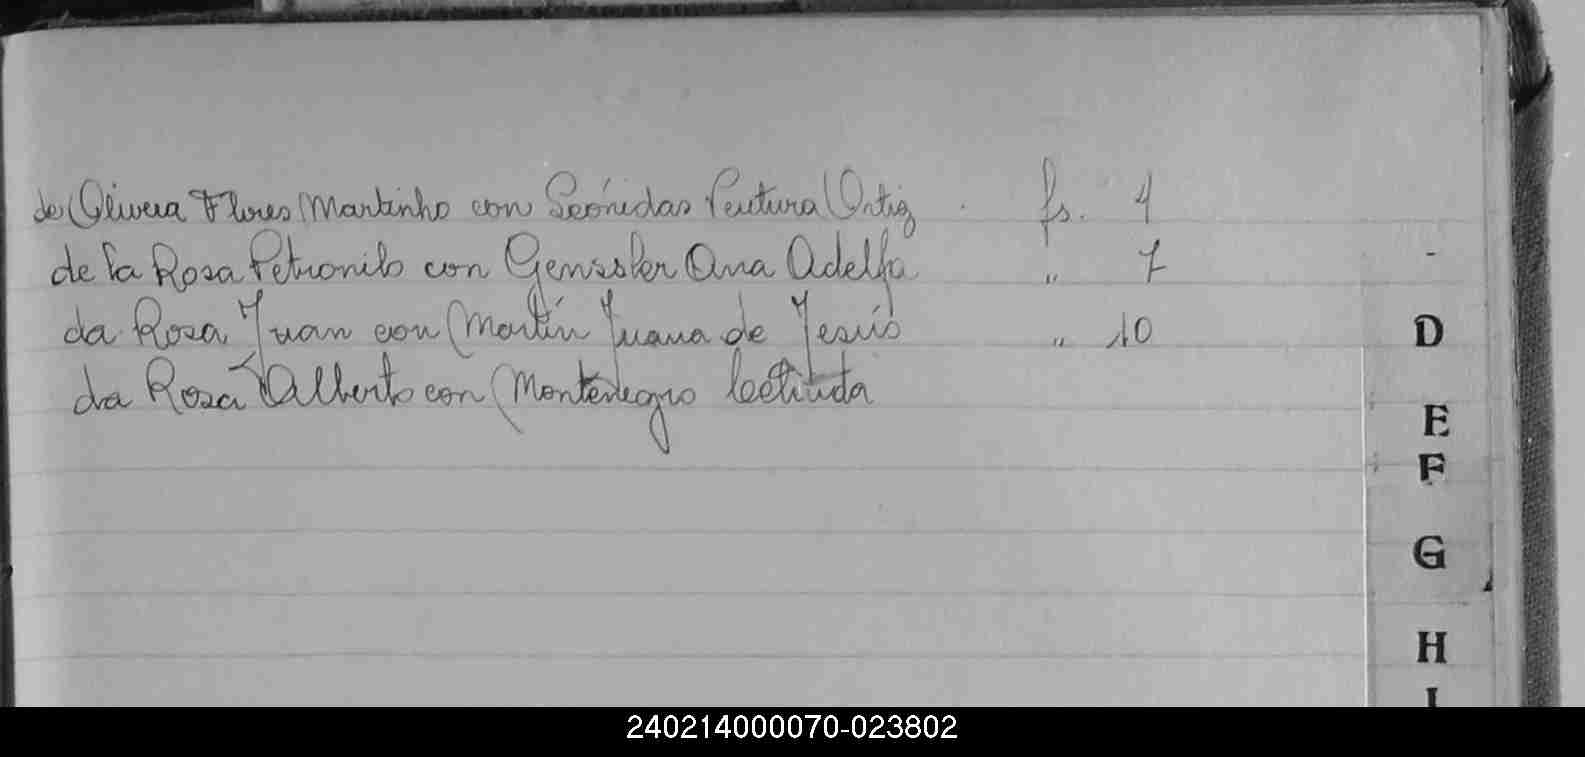 de Olivera Flores Martinho con Leónidas Ventura Ortiz . fs. 4
de la Rosa Petronilo con Genssler Ana Adelfa " 7
da Rosa Juan con Martín Juana de Jesús " 10
da Rosa Alberto con Montenegro
D
E
F
G
H
I
240214000070-023802